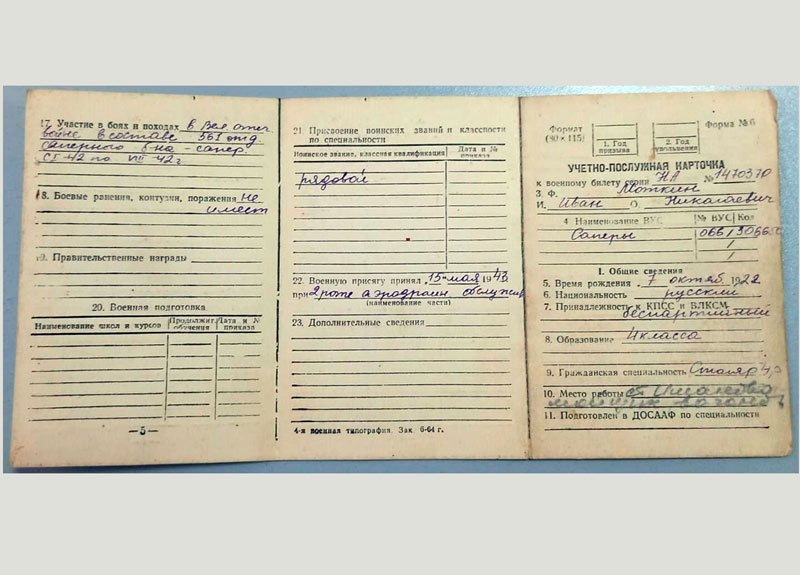 17. Участие в боях и походах в Вел. отеч.
войне в составе 561 отд.
саперного б-на - сапер.
с 42 по VIII 42 г
18. Боевые ранения, контузии, поражения не
имеет
19. Правительственные награды
20. Военная подготовка
Наименование школ и курсов Продолжит. обучения Дата и № приказа
—5—
21. Присвоение воинских званий и классности
по специальности
Воинское звание, классная квалификация Дата и № приказа
рядовой
22. Военную присягу принял 15 мая 194
при 2 роте аэродромн обслужив
(наименование части)
23. Дополнительные сведения
4-я военная типография. Зак. 6-64 г.
Формат
(90×115)
1. Год
призыва
2. Год
увольнения
Форма № 6
УЧЕТНО-ПОСЛУЖНАЯ КАРТОЧКА
к военному билету серии НА № 1470370
3. Ф. Моткин
И. Иван О. Николаевич
4 Наименование ВУС № ВУС Код
Саперы
I. Общие сведения
5. Время рождения 7 октяб. 1922
6. Национальность русский
7. Принадлежность к КПСС и ВЛКСМ
беспартийный
8. Образование 4 класса
9. Гражданская специальность Столяр
10. Место работы ст.
вагонов
11. Подготовлен в ДОСААФ по специальности